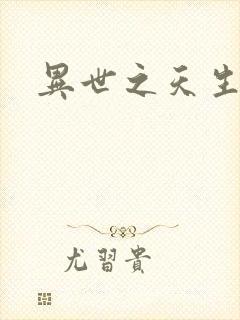 異世之天生
尤習貴